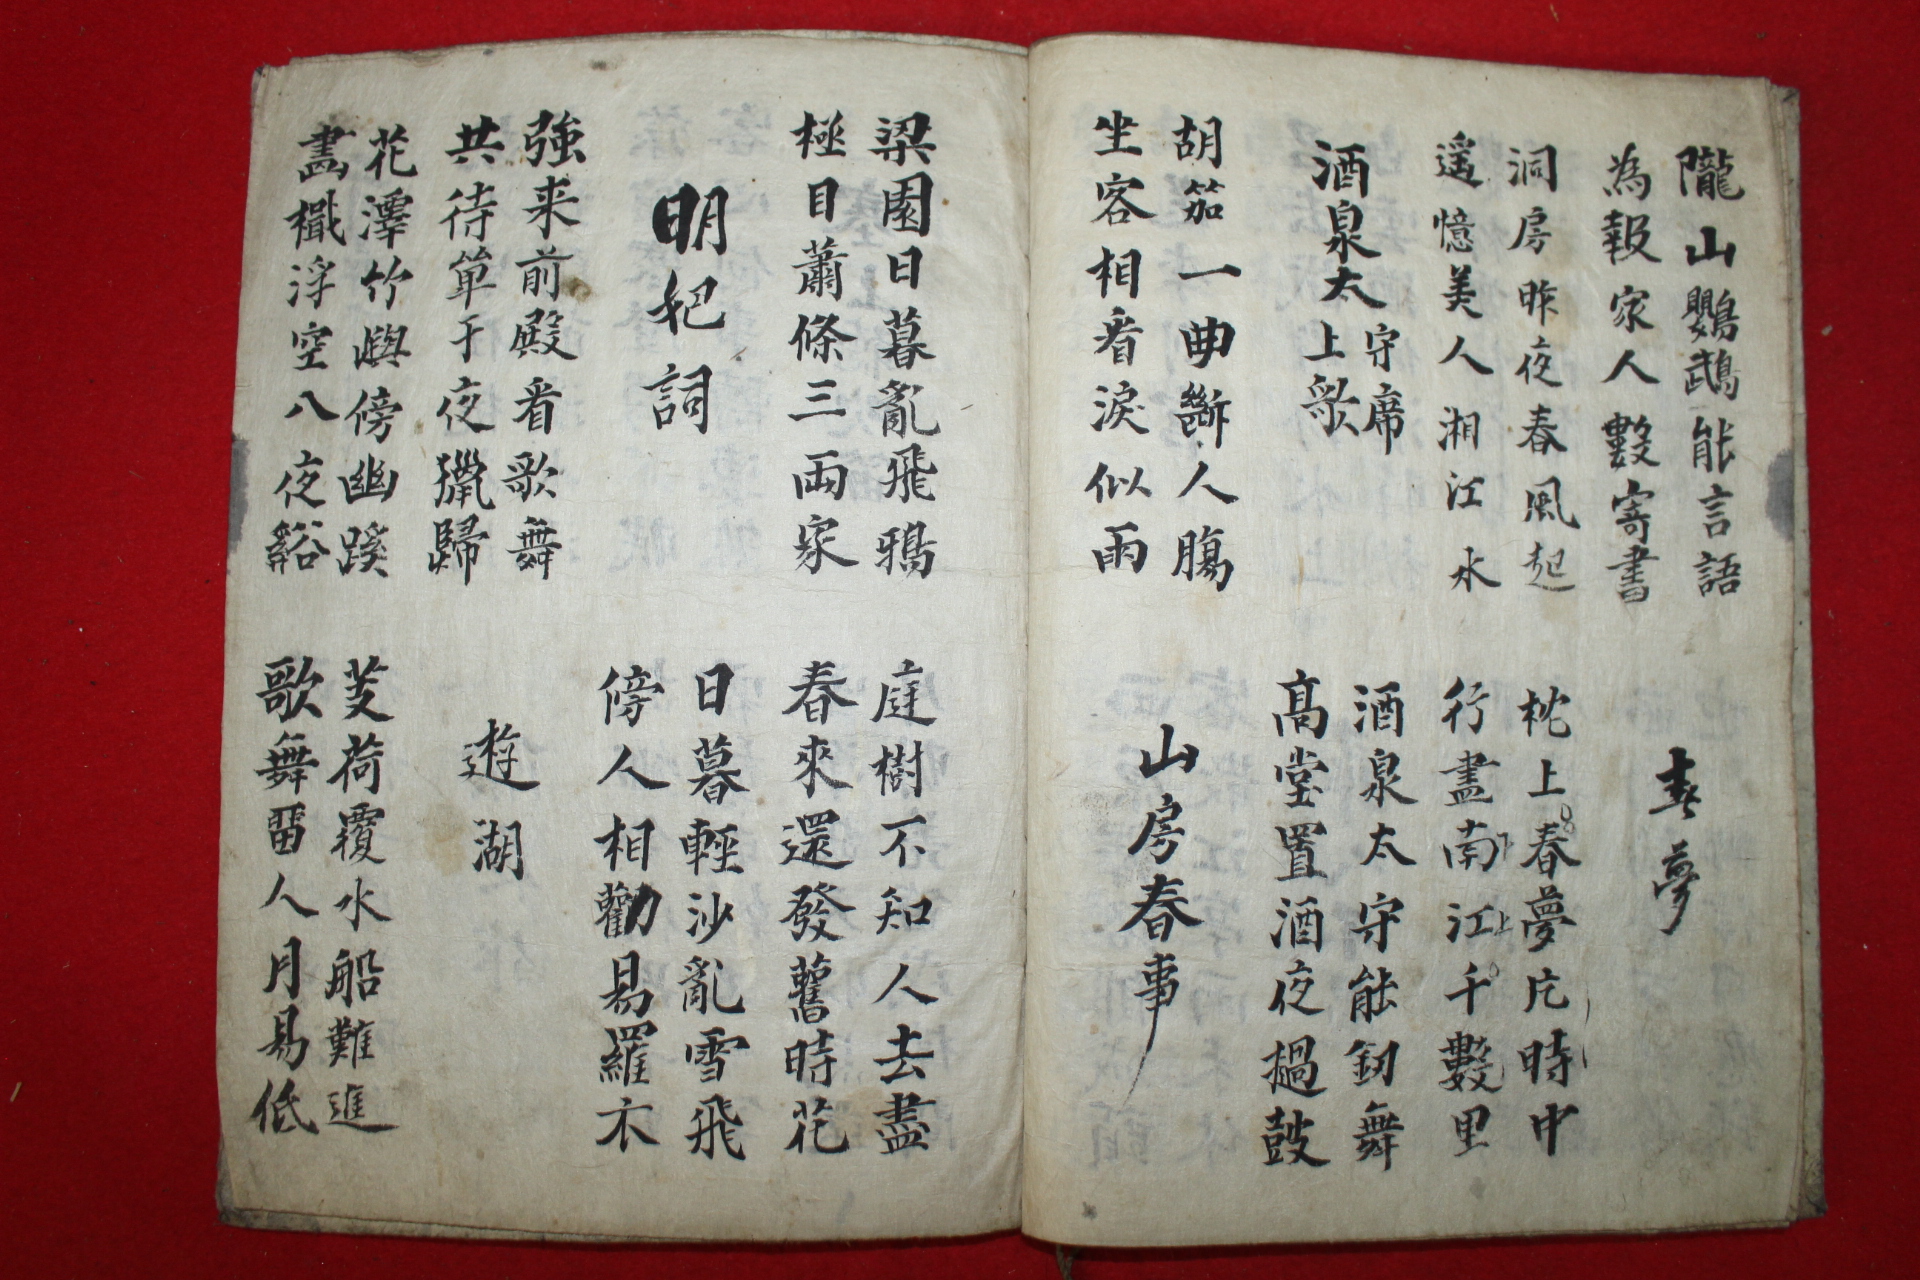 隴山鸚鵡能言語
為報家人數寄書
春夢
洞房昨夜春風起
遥憶美人湘江水
枕上春夢片時中
行盡南江千數里
酒泉太守席上歌
酒泉太守能釰舞
高堂置酒夜撾鼓
胡笳一曲斷人膓
坐客相看淚似雨
山房春事
梁園日暮亂飛鴉
極目蕭條三兩家
庭樹不知人去盡
春來還發舊時花
明妃詞
日暮輕沙亂雪飛
傍人相勸易羅衣
強来前殿看歌舞
共待單于夜獵歸
遊湖
花潭竹嶼傍幽蹊
畵檝浮空八夜谿
芰荷覆水船難進
歌舞畱人月易低